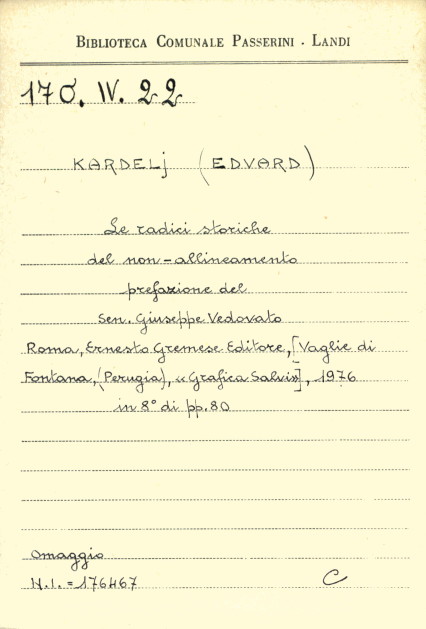 BIBLIOTECA COMUNALE PASSERINI - LANDI
17 O. IV. 22
KARDELj (EDVARD)
Le radici storiche
del non-allineamento
prefazione del
Sen. Giuseppe Vedovato
Roma, Ernesto Gremese Editore, [Vaglie di
Fontana, (Perugia), «Grafica Salvi»], 1976
in 8° di pp. 80
Omaggio
N.I. = 176467
C